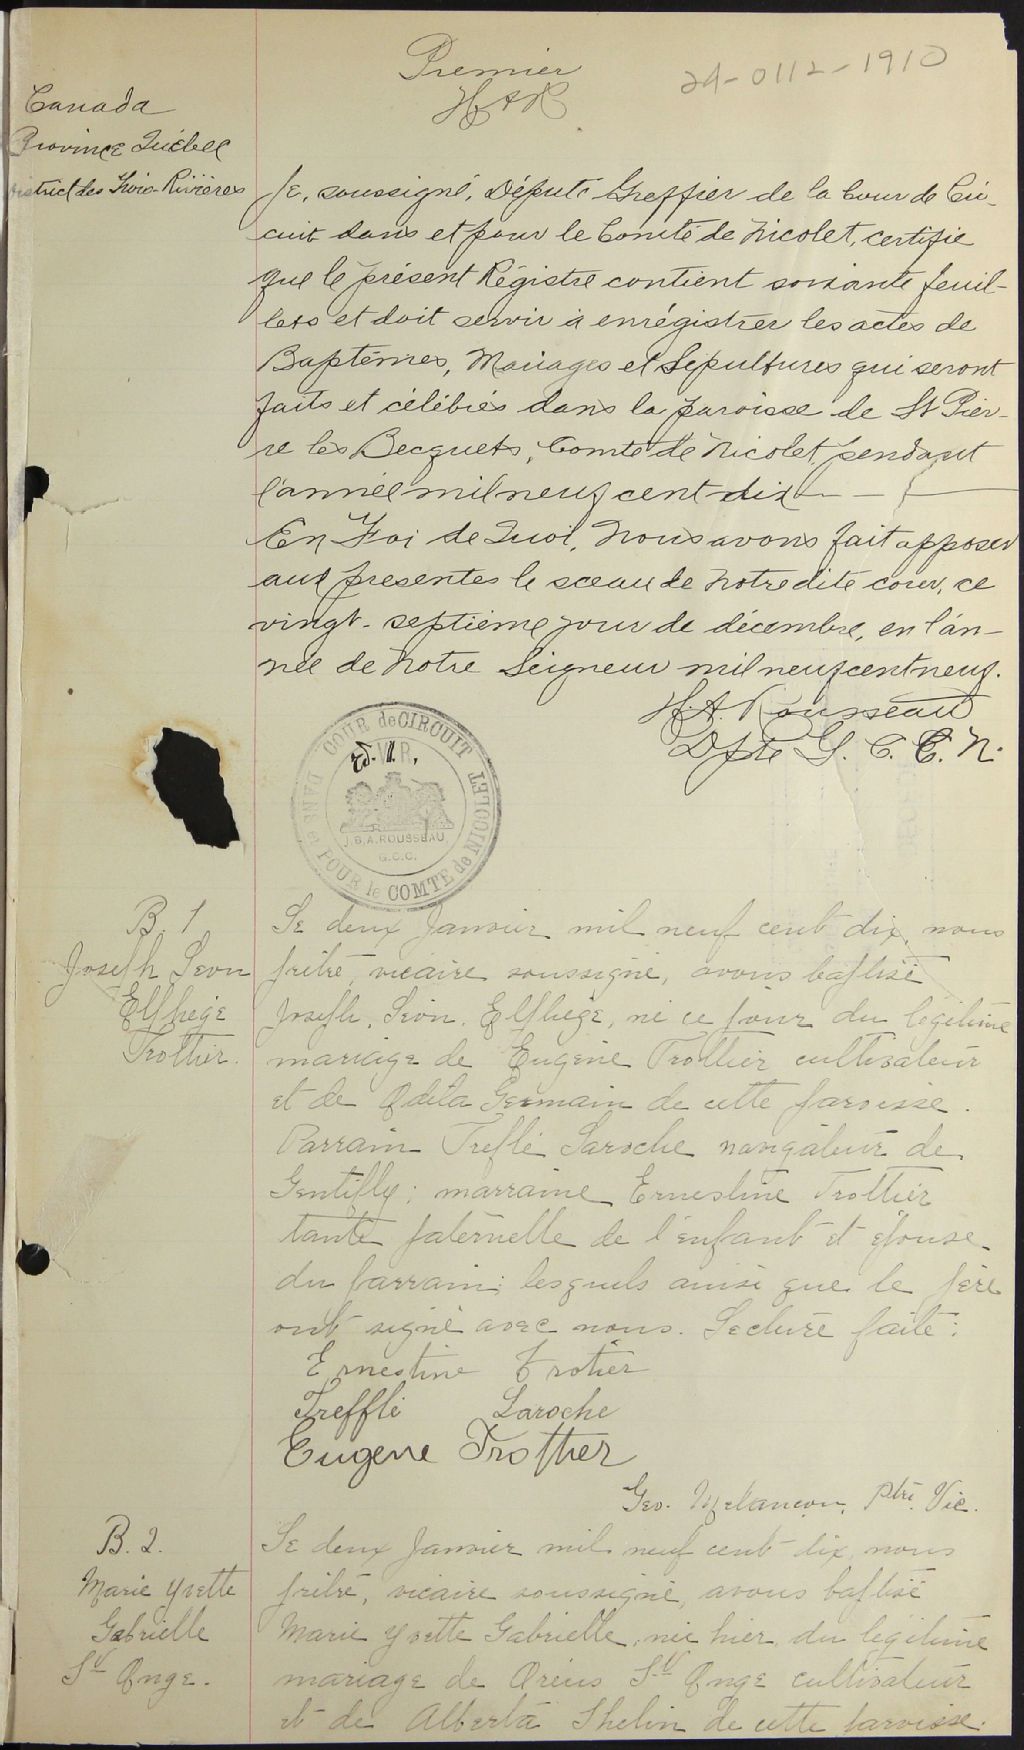 Premier
24-0112-1910
H A R
Canada
Province Québec
District des Trois-Rivières
Je, soussigné, Député Greffier de la Cour de Cir-
cuit dans et pour le Comté de Nicolet, certifie
que le présent Régistre contient soixante feuil-
lets et doit servir à enrégistrer les actes de
Baptêmes, Mariages et Sépultures qui seront
faits et célébrés dans la paroisse de St Pier-
re les Becquets, Comté de Nicolet, pendant
l'année mil neuf cent dix
En Foi de Quoi, Nous avons fait apposer
aux présentes le sceau de Notre dite cour, ce
vingt-septième jour de décembre, en l'an-
née de Notre Seigneur mil neuf cent neuf.
H. A. Rousseau
Dpté G. C. C. N.
COUR de CIRCUIT
DANS et POUR le COMTE de NICOLET
Ed. V. R.
J.B.A. ROUSSEAU
G.C.C.
B. 1
Joseph Léon
Elphège
Trottier.
Le deux Janvier mil neuf cent dix, nous
prêtre, vicaire soussigné, avons baptisé
Joseph, Léon, Elphège, né ce jour du légitime
mariage de Eugène Trottier cultivateur
et de Odila Germain de cette paroisse.
Parrain Trefflé Laroche navigateur de
Gentilly; marraine Ernestine Trottier
tante paternelle de l'enfant et épouse
du parrain; lesquels ainsi que le père
ont signé avec nous. Lecture faite:
Ernestine Trotier
Trefflé Laroche
Eugene Trottier
Geo. Melançon, Ptre Vic.
B. 2.
Marie Yvette
Gabrielle
St Onge.
Le deux Janvier mil neuf cent dix, nous
prêtre, vicaire soussigné, avons baptisé
Marie Yvette Gabrielle, née hier, du légitime
mariage de St Onge cultivateur
et de Alberta de cette paroisse.